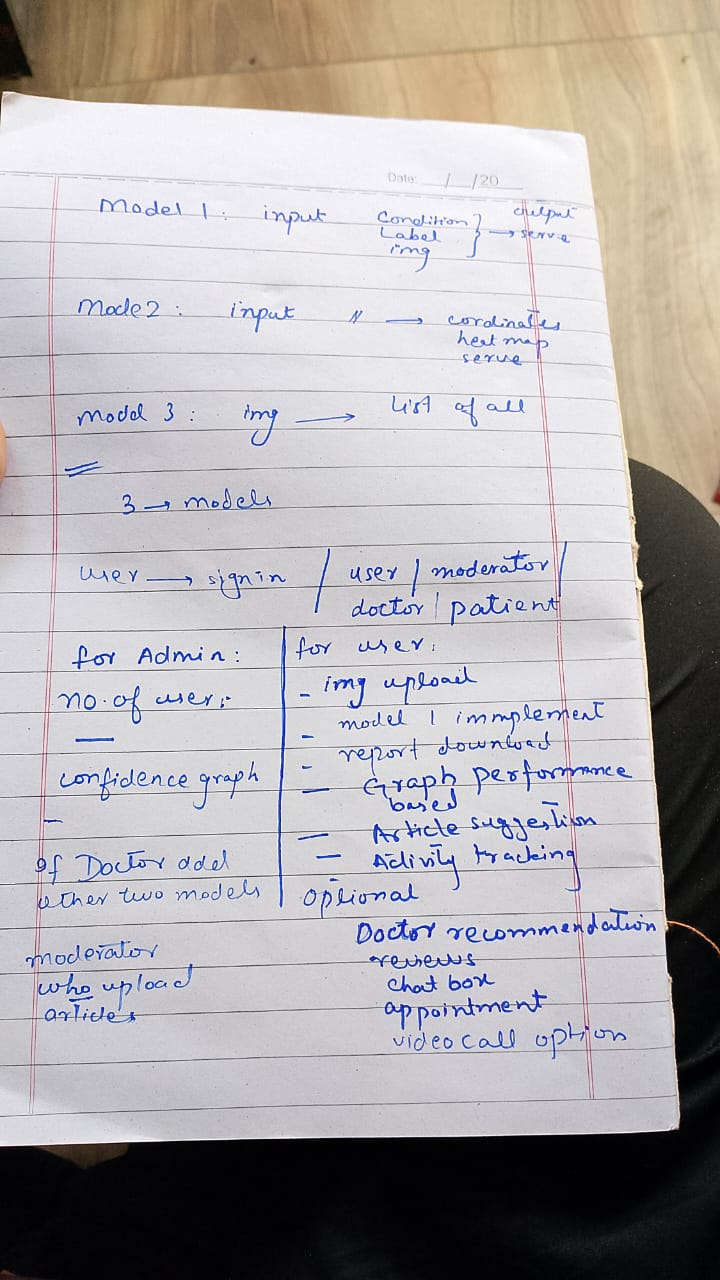 Date: __/__/20__
Model 1 : input Condition Label img } → output serve
Mode2 : input " → cordinates
heat map
serve
Model 3 : img → List of all
3 → models
user → signin / user / moderator /
doctor / patient
for Admin :
no. of user :-
confidence graph
If Doctor add
other two models
moderator
who upload
articles
for user :
- img upload
- model 1 immplement
- report download
- Graph performance
based
- Article suggestion
- Activity tracking
optional
Doctor recommendation
reviews
chat box
appointment
video call option